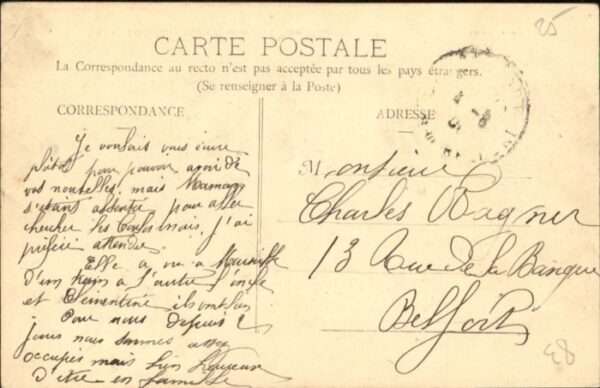 25
CARTE POSTALE
La Correspondance au recto n'est pas acceptée par tous les pays étrangers.
(Se renseigner à la Poste)
CORRESPONDANCE
ADRESSE
Je voulais vous écrire
plutôt pour pouvoir avoir de
vos nouvelles, mais Maman
s'étant absentée pour aller
chercher les j'ai
préféré attendre.
Elle a vu a Marseille
d'un train à l'autre l'oncle
et Clémentine ils ont
Pour nous depuis 2
jours nous sommes assez
occupés mais bien heureux
d'être en famille
Monsieur
Charles Wagner
13 Rue de la Banque
Belfort
83